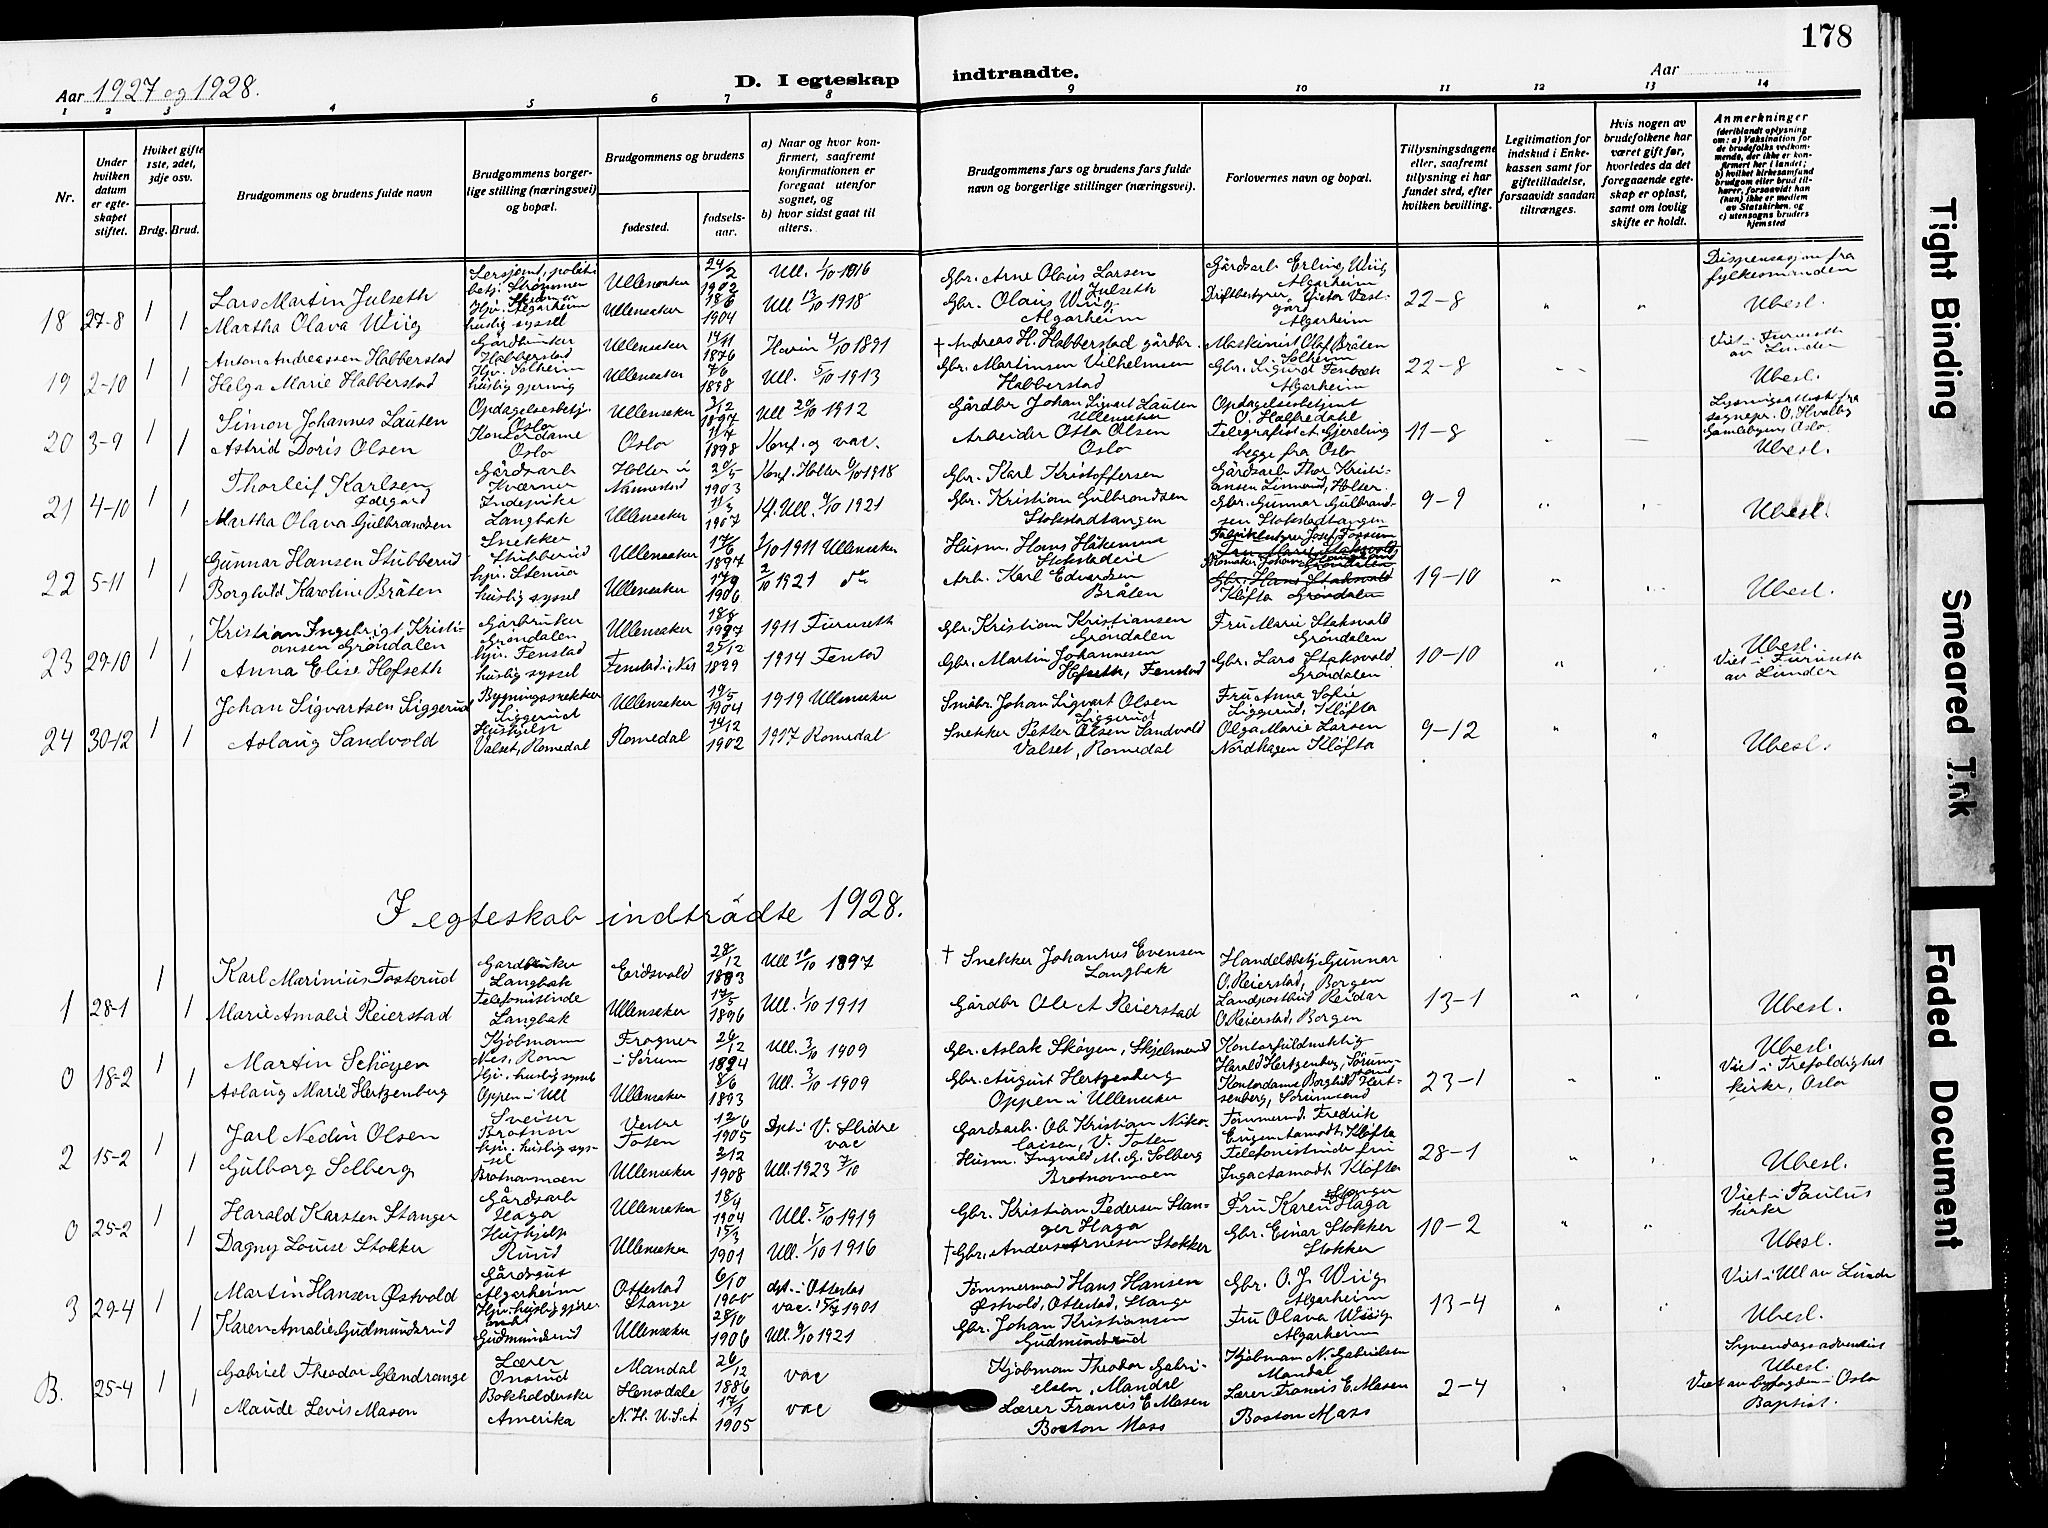 178
Aar 1927 og 1928.
D. I egteskap
indtraadte.
Aar
1 2 3 4 5 6 7 8 9 10 11 12 13 14
Nr.
Under hvilken datum er egteskapet stiftet.
Hviket gifte 1ste, 2det, 3dje osv.
Brdg. Brud.
Brudgommens og brudens fulde navn
Brudgommens borgerlige stilling (næringsvei) og bopæl.
Brudgommens og brudens
fødested.
fødselsaar.
a) Naar og hvor konfirmert, saafremt konfirmationen er foregaat utenfor sognet, og
b) hvor sidst gaat til alters.
Brudgommens fars og brudens fars fulde navn og borgerlige stillinger (næringsvei).
Forlovernes navn og bopæl.
Tillysningsdagene eller, saafremt tillysning ei har fundet sted, efter hvilken bevilling.
Legitimation for indskud i Enkekassen samt for giftetilladelse, forsaavidt saadan tiltrænges.
Hvis nogen av brudefolkene har været gift før, hvorledes da det foregaaende egteskap er opløst, samt om lovlig skifte er holdt.
Anmerkninger
(deriblandt oplysning om: a) Vaksination for de brudefolks vedkommende, der ikke er konfirmert her i landet; b) hvilket kirkesamfund brudgom eller brud tilhører, forsaavidt han (hun) ikke er medlem av Statskirken, og c) utensogns bruders hjemsted
18 27-8 1 1
Lars Martin Julseth
Ullensaker 24/2 1902 Ull. 1/10 1916
Gbr. Arne Olaus Larsen Julseth
Gårdsarb. Erling Wiig Algarheim
Dispensasjon fra fylkesmanden
Martha Olava Wiig
Hjv. Algarheim huslig syssel
Ullensaker 18/6 1904 Ull 13/10 1918
Gbr. Olaus Wiig Algarheim
Driftbestyrer Victor Vestgård Algarheim
22-8 Ubesl.
19 2-10 1 1
Anton Andreassen Habberstad
Gårdbruker Habberstad
Ullensaker 14/11 1876 Hovin 4/10 1891
† Andreas H. Habberstad gårdbr.
Maskinist Olaf Bråten Solheim
Viet i Furuseth av Lunder
Helga Marie Habberstad
Hjv. Solheim huslig gjerning
Ullensaker 7/6 1898 Ull. 5/10 1913
Gbr. Martinsen Vilhelmsen Habberstad
Gbr. Sigurd Algarheim
22-8 Ubesl.
20 3-9 1 1
Simon Johannes Lauten
Opdagelsesbetj. Oslo
Ullensaker 3/12 1897 Ull 20/10 1912
Gårdbr Johan Sigvart Lauten Ullensaker
Opdagelsesbetjent O. Halfredahl
Lysningsattest fra sognepr. O. Hvalby Gamlebyen Oslo
Astrid Doris Olsen
Kontordame Oslo
Oslo 11/7 1898 Konf. og vac.
Arbeider Otto Olsen Oslo
Telegrafist A. Gjerding begge fra Oslo
11-8 Ubesl.
21 4-10 1 1
Thorleif Karlsen Ødegård
Gårdsarb Kværner
Holter i Nannestad 20/5 1903 Konf. Holter 6/10 1918
Gbr. Karl Kristoffersen
Gårdsarb Thor Kristiansen Linnerud, Holter.
Martha Olava Gulbrandsen
Inderpike Langbak
Ullensaker 11/3 1907 Ull. 9/10 1921
Gbr. Kristian Gulbrandsen Stokstadtangen
Gbr. Gunnar Gulbrandsen Stokstadtangen
9-9 Ubesl.
22 5-11 1 1
Gunnar Hansen Stubberud
Snekker Stubberud
Ullensaker 17/6 1897 1/10 1911 Ullensaker
Husm. Hans Håkensen
Fabrikbestyrer Josef Fossum
Borghild Karoline Bråten
hjv. Stenua huslig syssel
Ullensaker 17/9 1906 2/10 1921 do
Arb. Karl Edvardsen Bråten
Kløfta
19-10 Ubesl.
23 29-10 1 1
Kristian Ingebrigt Kristiansen Grøndalen
Gårbruker Grøndalen
Ullensaker 18/8 1897 1911 Furuseth
Gbr. Kristian Kristiansen Grøndalen
Fru Marie Staksvold Grøndalen
Anna Elise Hofseth
hjv. Fenstad huslig syssel
Fenstad i Nes 25/12 1899 1914 Fenstad
Gbr. Martin Johannesen Hofseth, Fenstad
Gbr. Lars Staksvold Grøndalen
10-10 Ubesl. Viet i Furuseth av Lunder
24 30-12 1 1
Johan Sigvartsen Liggerud
Bygningssnekker Liggerud
Ullensaker 19/5 1904 1919 Ullensaker
Småbr. Johan Sigvart Olsen Liggerud
Fru Anna Sofie Liggerud, Kløfta
Aslaug Sandvold
Hushjelp Valset, Romedal
Romedal 14/12 1902 1917 Romedal
Snekker Petter Olsen Sandvold Valset, Romedal
Olga Marie Larsen Nordhagen Kløfta
9-12 Ubesl.
I egteskab indtrådte 1928.
1 28-1 1 1
Karl Marinius Tosterud
Gardbruker Langbak
Eidsvold 28/12 1883 Ull 10/10 1897
† Snekker Johannes Evensen Langbak
Handelsbetj Gunnar O. Reierstad, Borgen
Marie Amalie Reierstad
Telefonistinde Langbak
Ullensaker 17/5 1896 Ull. 1/10 1911
Gårdbr Ole A Reierstad
Landpostbud Reidar O. Reierstad, Borgen
13-1 Ubesl.
0 18-2 1 1
Martin Schøyen
Kjøbmann Nes, Rom
Frogner i Sørum 26/12 1894 Ull. 3/10 1909
Gbr. Aslak Skøyen, Skjelmerud
Kontorfuldmektig Harald Hertzenberg, Sørumsand
Ubesl.
Aslaug Marie Hertzenberg
Hjv. huslig syssel Oppen i Ull
Ullensaker 8/6 1893 Ull. 3/10 1909
Gbr. August Hertzenberg Oppen i Ullensaker
Kontordame Borghild Hertzenberg, Sørumsand
23-1 Viet i Trefoldighet kirke, Oslo
2 15-2 1 1
Jarl Nedin Olsen
Sveiser Brotnov
Vestre Toten 12/6 1905 Døpt i V. Slidre vac
Gardsarb. Ole Kristian Nikolaisen, V. Toten
Tømmerm. Fredrik Eugen Aamodt, Kløfta
Gulborg Solberg
hjv. huslig syssel Brotnovmoen
Ullensaker 3/12 1908 Ull. 1923 7/10
Husm. Ingvald M. G. Solberg Brotnovmoen
Telefonistinde fru Inga Aamodt Kløfta
28-1 Ubesl.
0 25-2 1 1
Harald Karsten Stanger
Gårdsarb Haga
Ullensaker 18/4 1904 Ull. 5/10 1919
Gbr. Kristian Pedersen Stanger Haga
Fru Karen Stanger Haga
Viet i Paulus kirke
Dagny Louise Stokker
Hushjelp Ruud
Ullensaker 15/3 1901 Ull. 1/10 1916
† Gbr. Anders Arnesen Stokker
Gbr. Einar Stokker Stokker
10-2 Ubesl.
3 29-4 1 1
Martin Hansen Østvold
Gårdsgut Algarheim
Ottestad Stange 6/10 1900 døpt i Ottestad vac. i 15/7 1901
Tømmermad Hans Hansen Østvold, Ottestad, Stange
Gbr. O. J. Wiig Algarheim
Viet i Ull av Lunde
Karen Amalie Gudmundsrud
Gudmundsrud
Ullensaker 28/10 1906 Ull. 9/10 1921
Gbr. Johan Kristiansen Gudmundsrud
Fru Olava Wiig Algarheim
13-4 Ubesl.
B. 25-4 1 1
Gabriel Theodor Glendrange
Lærer Onsrud
Mandal 26/12 1886 vac
Kjøbman Theodor Gabrielsen, Mandal
Kjøbman N. Gabrielsen Mandal
Syvendags adventist Ubesl.
Maude Levis Mason
Bokholderske Amerika
N.H. U.S.A 17/1 1905 vac
Lærer Francis E Masen Boston Mass
Lærer Francis E. Masen Boston Mass
2-4 Viet av byfogden i Oslo Baptist.
Tight Binding
Smeared Ink
Faded Document